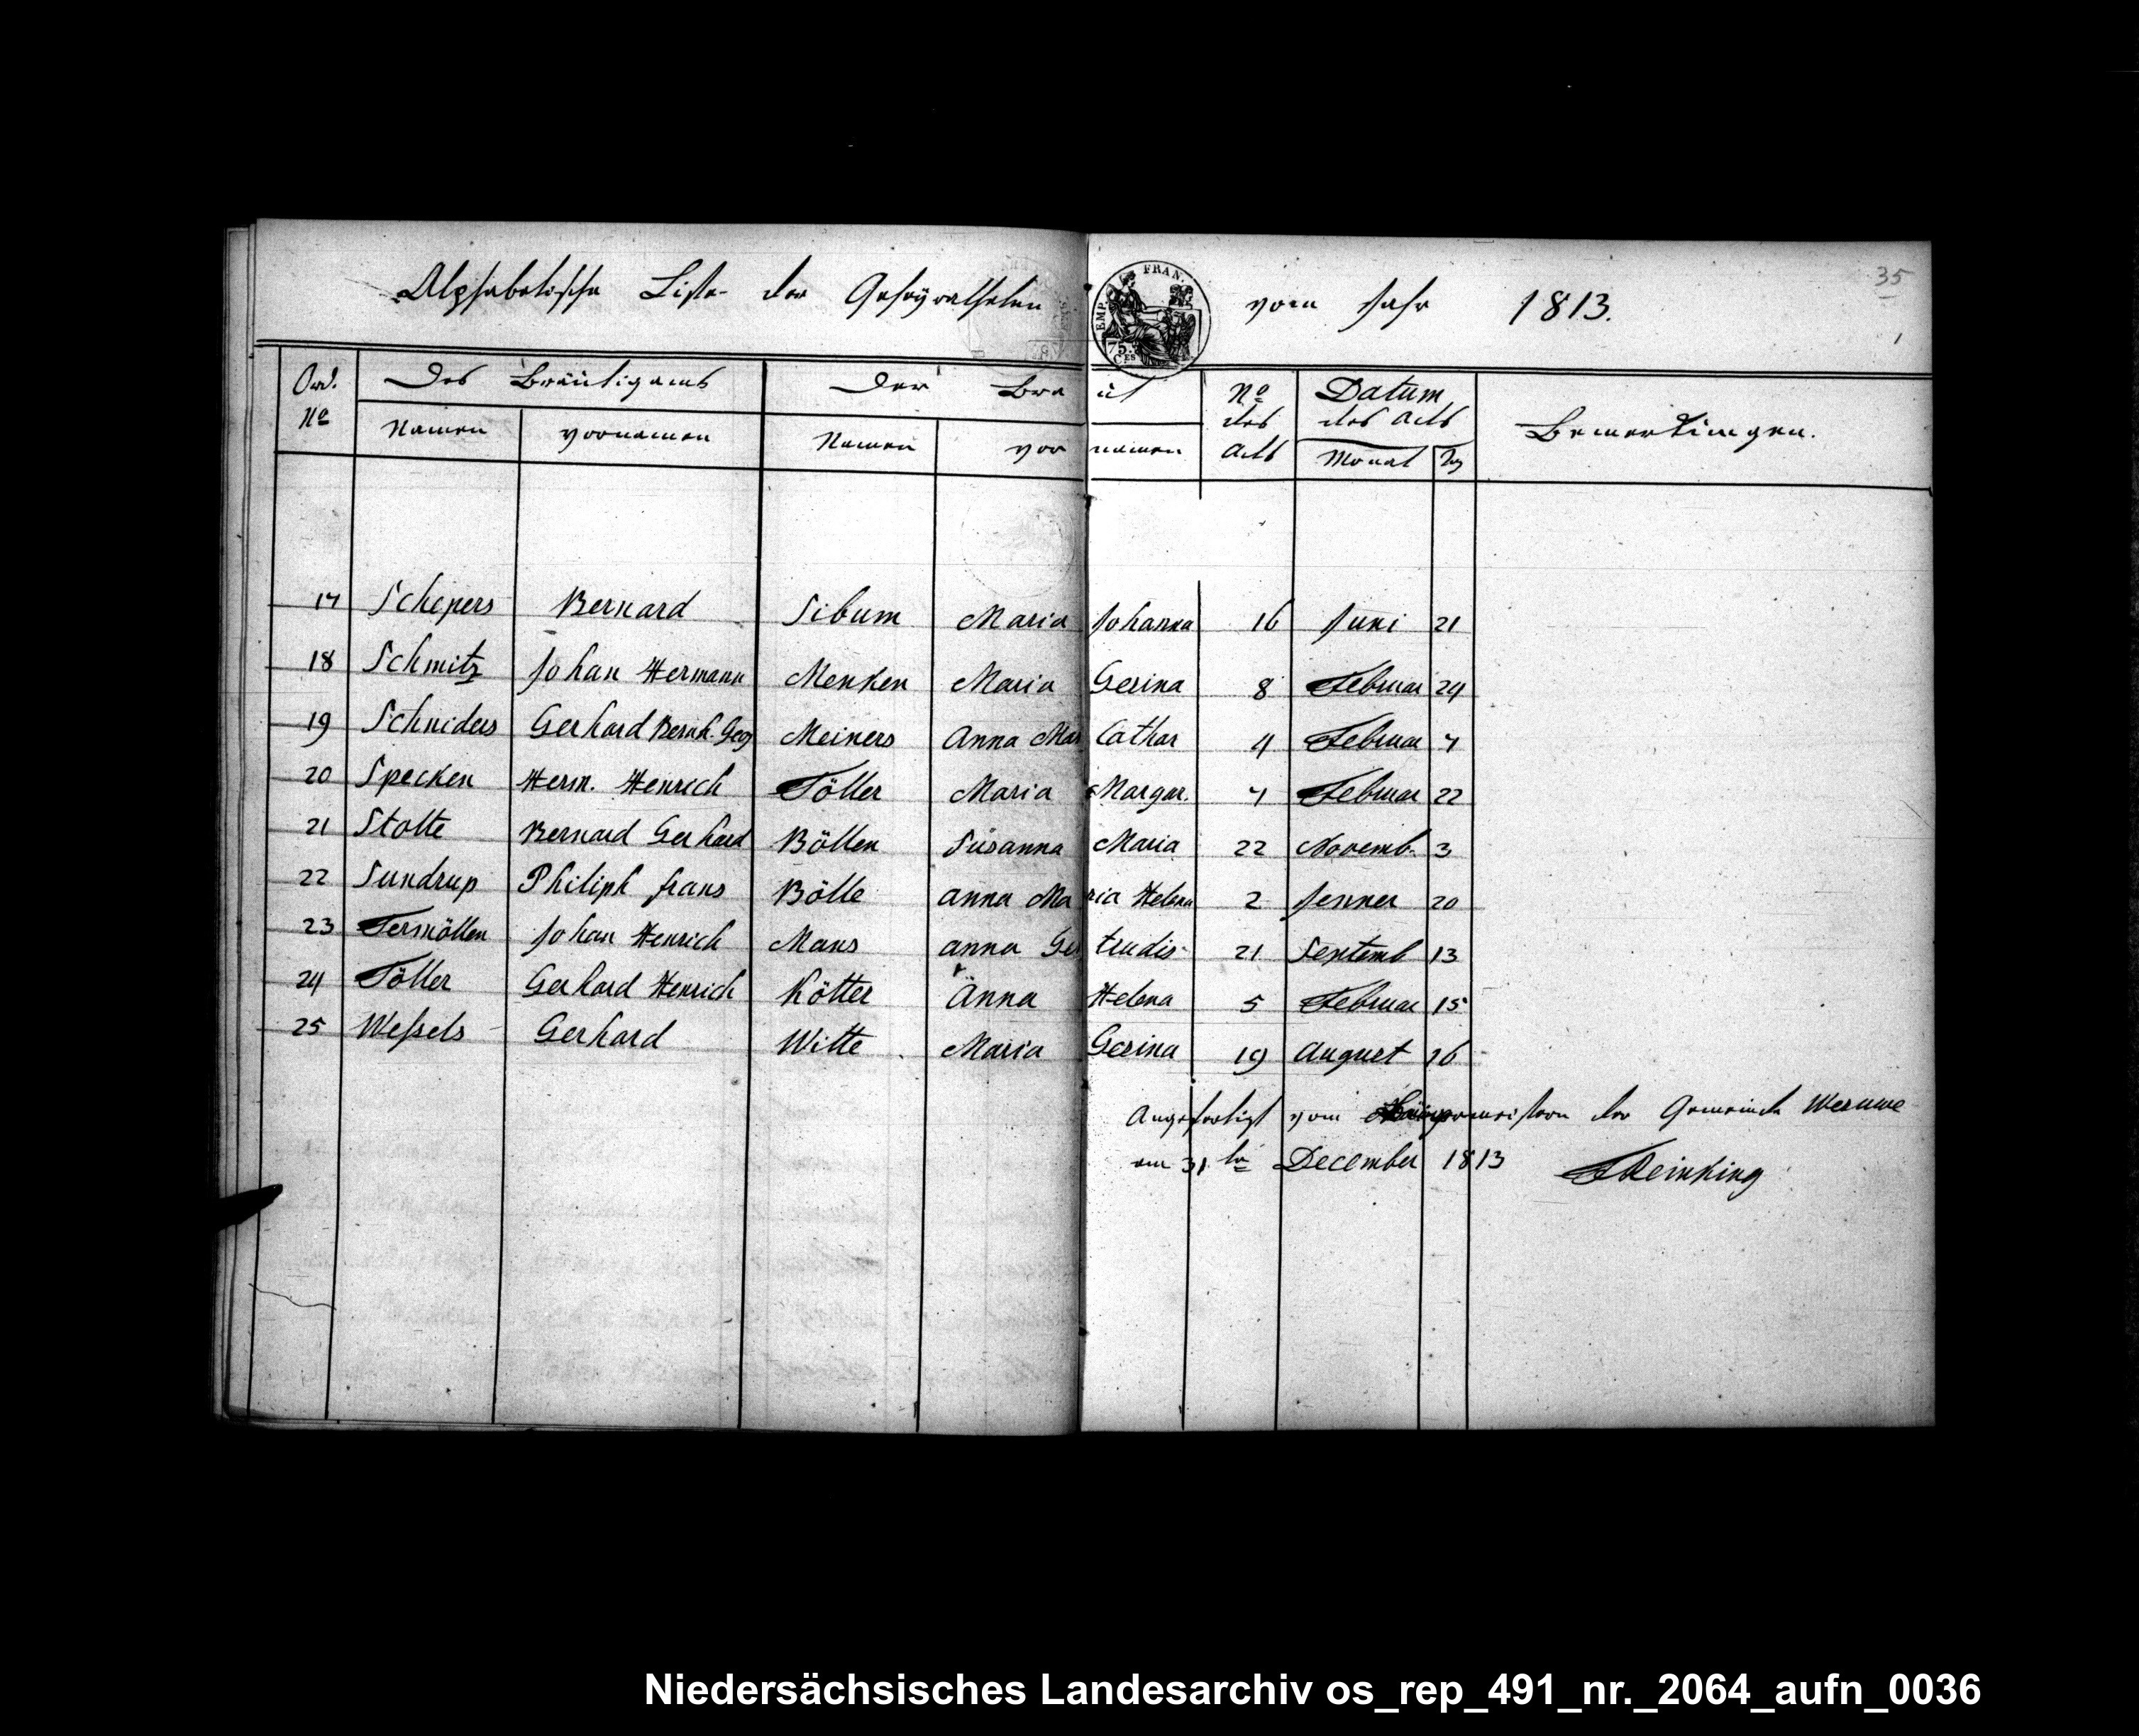 Alphabetische Liste der Geheyratheten vom Jahr 1813.
35
EMP. FRAN.
75. CES
Ord. No Des Bräutigams Der Braut No des Acts Datum des Acts Bemerkungen.
Namen Vornamen Namen Vornamen Monat Tag
17 Schepers Bernard Sibum Maria Johanna 16 Juni 21
18 Schmitz Johan Hermann Menken Maria Gesina 8 Februar 24
19 Schniders Gerhard Bernh. Geog Meiners Anna Mar Cathar 4 Februar 7
20 Specken Herm. Henrich Töller Maria Margar. 7 Februar 22
21 Stolte Bernard Gerhard Böllen Susanna Maria 22 Novemb. 3
22 Sundrup Philiph frans Bölle anna Maria Helena 2 Jenner 20
23 Termöllen Johan Henrich Mans anna Gertrudis 21 Septemb 13
24 Töller Gerhard Henrich Kötter Anna Helena 5 Februar 15
25 Weßels Gerhard Witte Maria Gesina 19 August 16
Angefertigt vom der Gemeinde Werwe
am 31ten December 1813 Reinking
Niedersächsisches Landesarchiv os_rep_491_nr._2064_aufn_0036